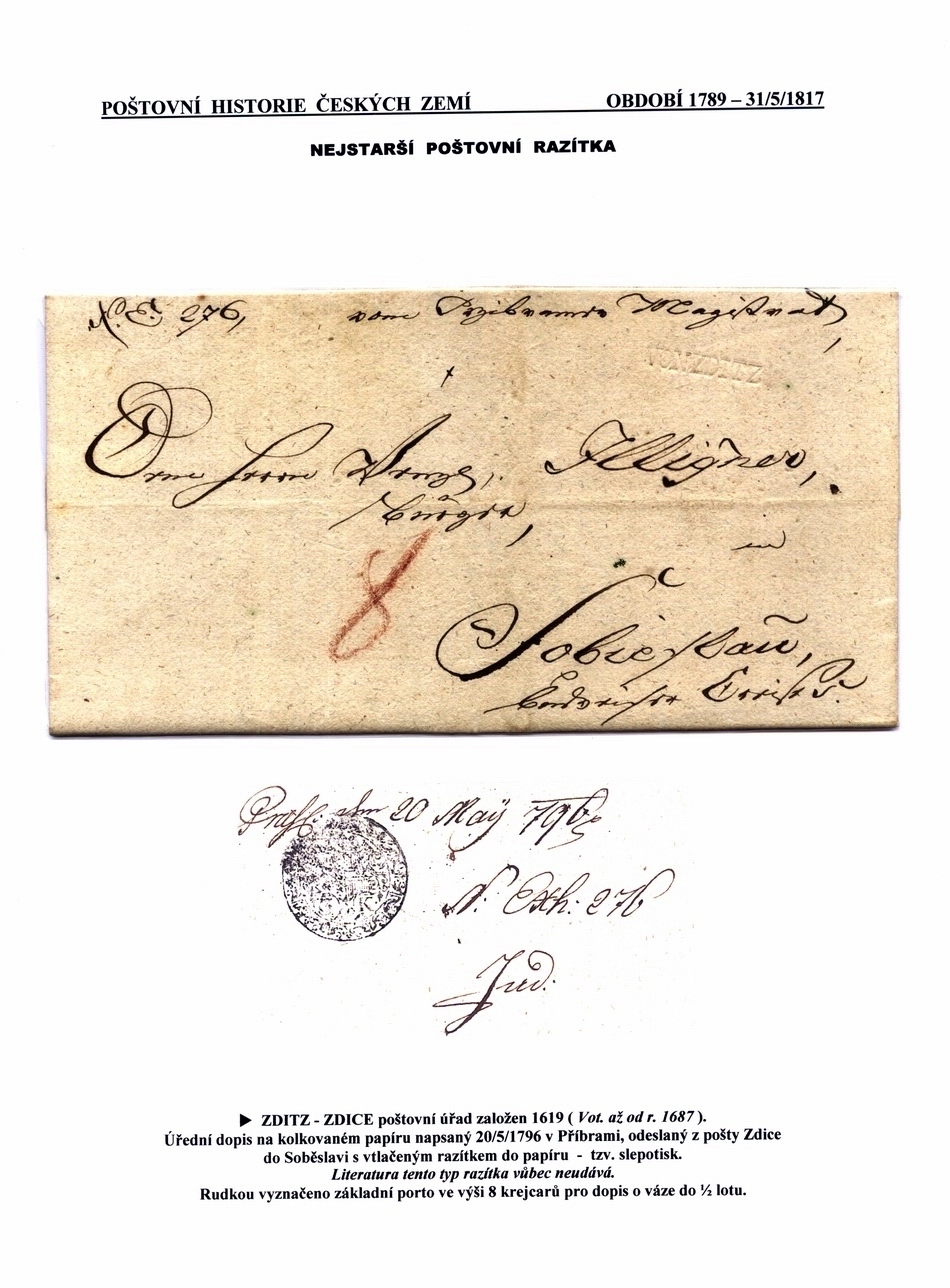 POŠTOVNÍ HISTORIE ČESKÝCH ZEMÍ OBDOBÍ 1789 – 31/5/1817
NEJSTARŠÍ POŠTOVNÍ RAZÍTKA
N. E. 276, vom Magistrat,
VON ZDITZ
Herrn
in
8
Sobieslau,
den 20 Maÿ 796
N: Exh: 276
Jud:
► ZDITZ - ZDICE poštovní úřad založen 1619 ( Vot. až od r. 1687 ).
Úřední dopis na kolkovaném papíru napsaný 20/5/1796 v Příbrami, odeslaný z pošty Zdice
do Soběslavi s vtlačeným razítkem do papíru - tzv. slepotisk.
Literatura tento typ razítka vůbec neudává.
Rudkou vyznačeno základní porto ve výši 8 krejcarů pro dopis o váze do ½ lotu.